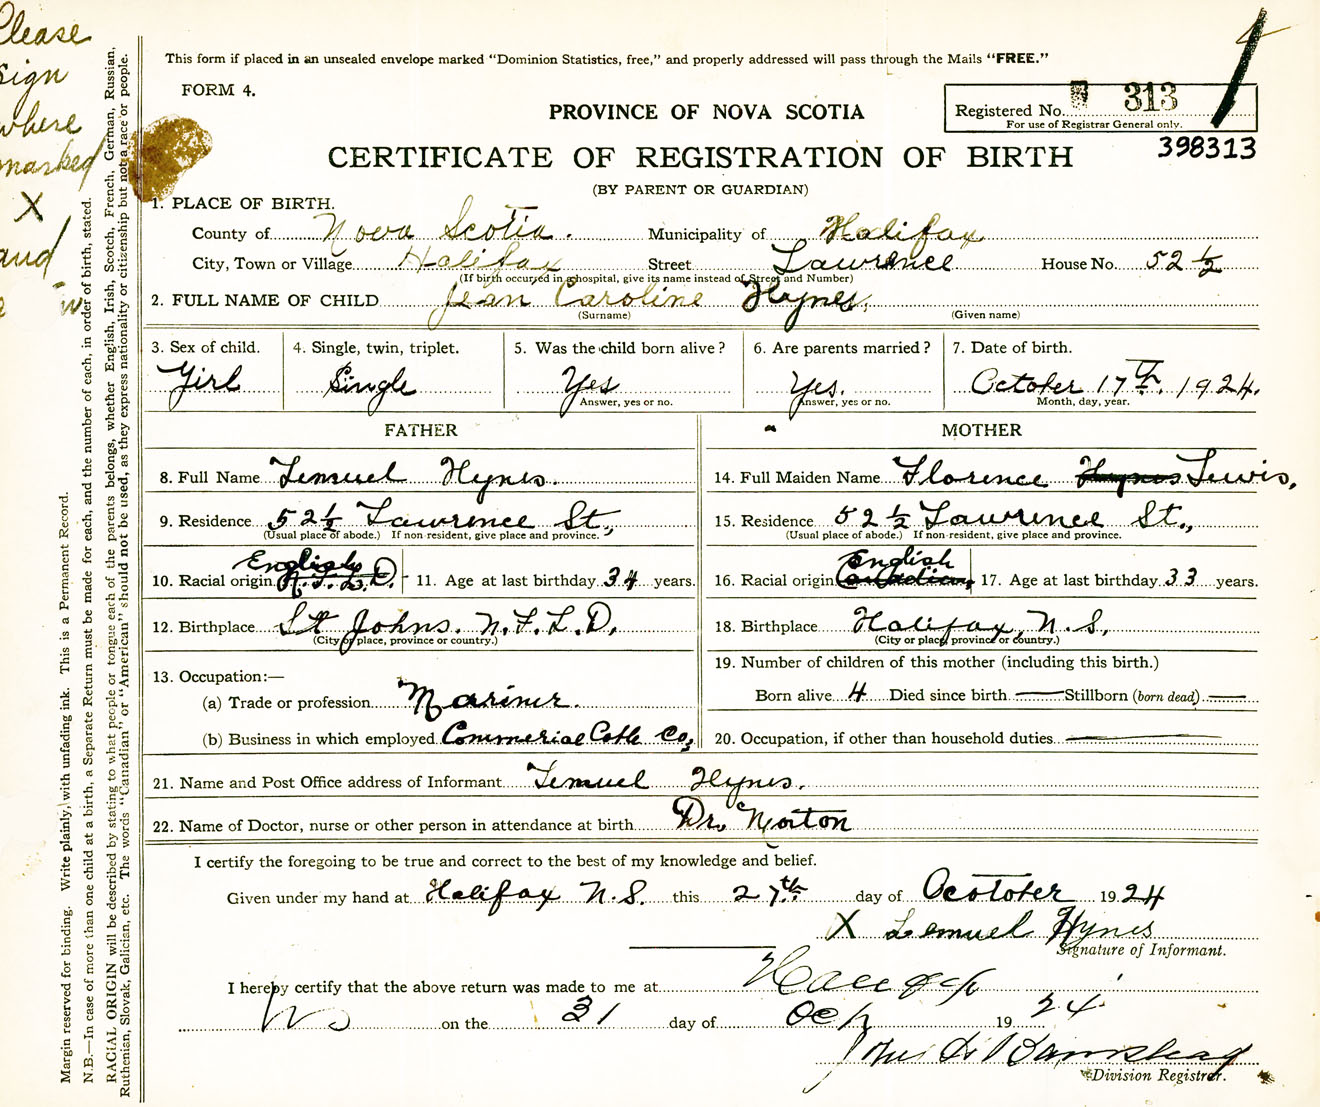 Please
sign
where
marked
X
and
"w
This form if placed in an unsealed envelope marked "Dominion Statistics, free," and properly addressed will pass through the Mails "FREE."
FORM 4.
Registered No. 313
For use of Registrar General only.
398313
PROVINCE OF NOVA SCOTIA
CERTIFICATE OF REGISTRATION OF BIRTH
(BY PARENT OR GUARDIAN)
1. PLACE OF BIRTH.
County of Nova Scotia. Municipality of Halifax
City, Town or Village Halifax Street Lawrence House No. 52 ½
(If birth occurred in a hospital, give its name instead of Street and Number)
2. FULL NAME OF CHILD Jean Caroline Hynes.
(Surname) (Given name)
3. Sex of child. 4. Single, twin, triplet. 5. Was the child born alive? 6. Are parents married? 7. Date of birth.
Girl Single Yes Yes. October 17th. 1924.
Answer, yes or no. Answer, yes or no. Month, day, year.
FATHER MOTHER
8. Full Name Lemuel Hynes. 14. Full Maiden Name Florence Hynes Lewis,
9. Residence 52½ Lawrence St., 15. Residence 52½ Lawrence St.,
(Usual place of abode.) If non-resident, give place and province. (Usual place of abode.) If non-resident, give place and province.
English English
10. Racial origin N.F.L.D. 11. Age at last birthday 34 years. 16. Racial origin Canadian, 17. Age at last birthday 33 years.
12. Birthplace St Johns. N.F.L.D. 18. Birthplace Halifax, N.S.
(City or place, province or country.) (City or place, province or country.)
13. Occupation:— 19. Number of children of this mother (including this birth.)
(a) Trade or profession Mariner. Born alive 4 Died since birth — Stillborn (born dead) —
(b) Business in which employed Commerial Cable Co, 20. Occupation, if other than household duties —
21. Name and Post Office address of Informant Lemuel Hynes.
22. Name of Doctor, nurse or other person in attendance at birth Dr. Norton
I certify the foregoing to be true and correct to the best of my knowledge and belief.
Given under my hand at Halifax N.S. this 27th day of Ocotober 1924
X Lemuel Hynes
Signature of Informant.
I hereby certify that the above return was made to me at
NS on the 31 day of Oct 1924
Division Registrar.
Margin reserved for binding. Write plainly, with unfading ink. This is a Permanent Record.
N.B.—In case of more than one child at a birth, a Separate Return must be made for each, and the number of each, in order of birth, stated.
RACIAL ORIGIN will be described by stating to what people or tongue each of the parents belongs, whether English, Irish, Scotch, French, German, Russian,
Ruthenian, Slovak, Galician, etc. The words "Canadian" or "American" should not be used, as they express nationality or citizenship but not a race or people.